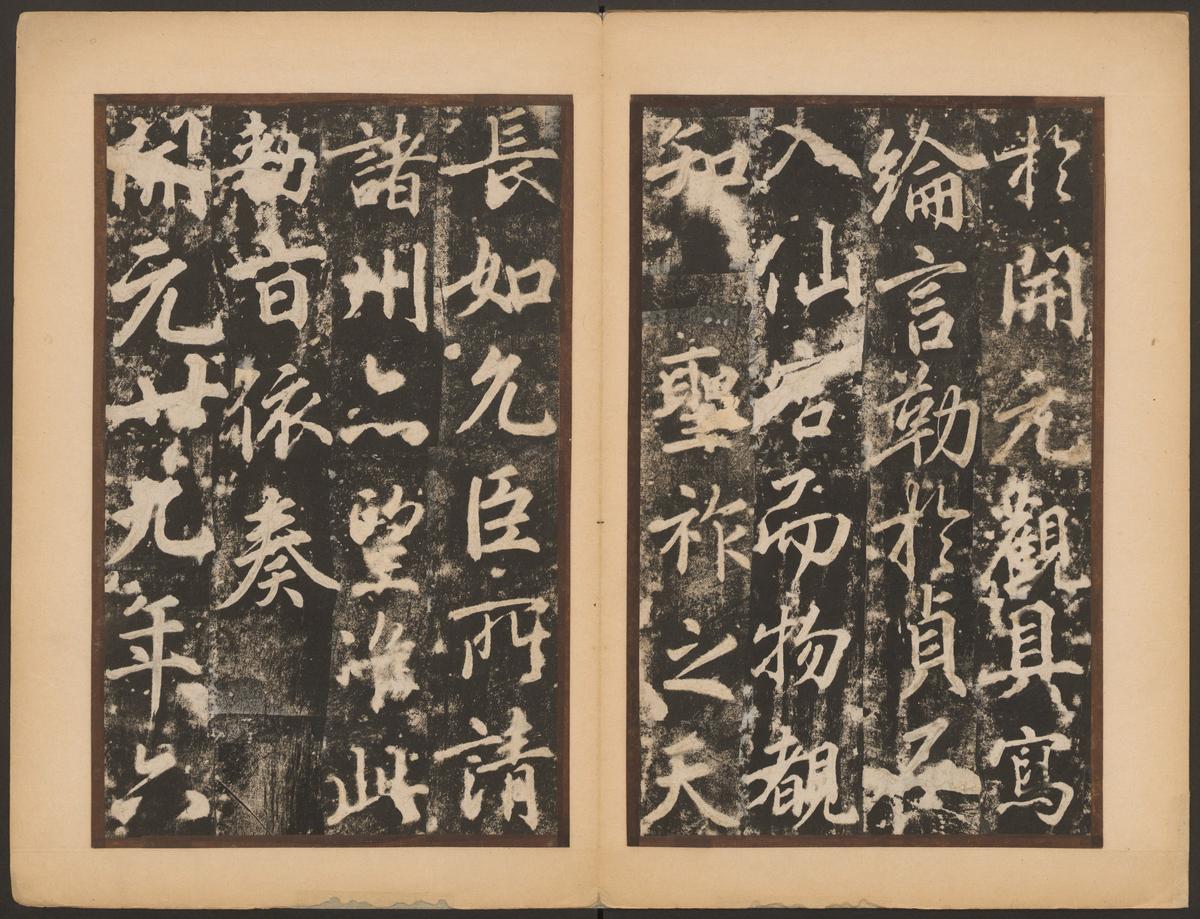 於開元觀具寫
綸言勒於貞石
入仙宮而物覩
知聖祚之天
長如允臣所請
諸州亦望准此
勅旨依奏
開元廿九年六